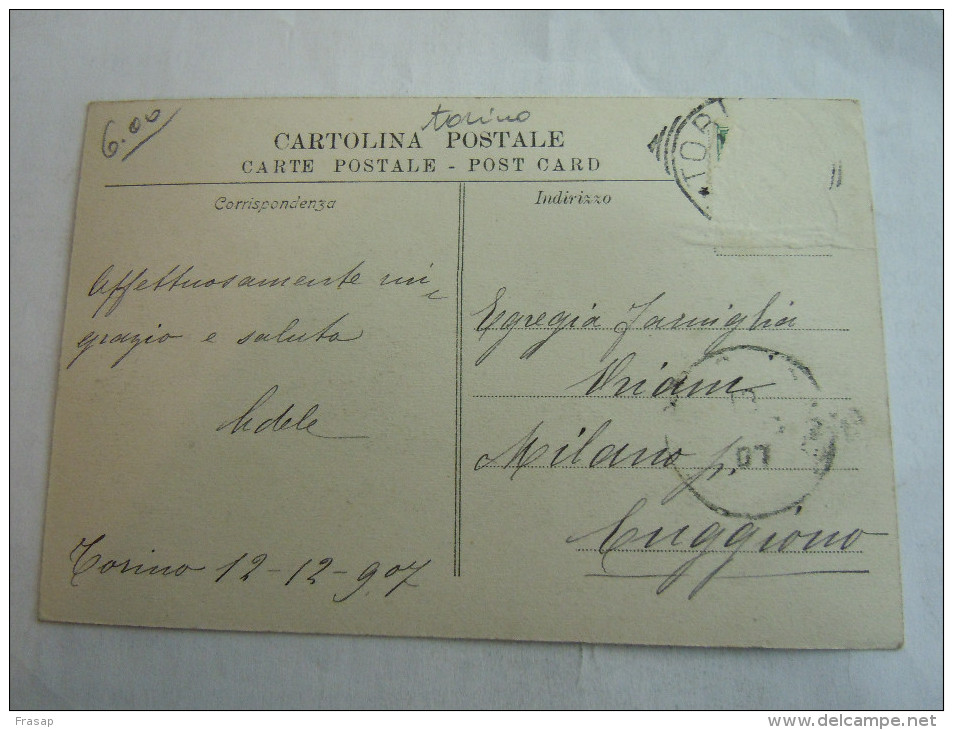 6.00
torino
CARTOLINA POSTALE
CARTE POSTALE - POST CARD
TOR
Corrispondenza
Indirizzo
Affettuosamente rin-
grazio e saluto
Adele
Torino 12-12-907
Egregia Famiglia
Milano p.
Cuggiono
07
Frasap
www.delcampe.net